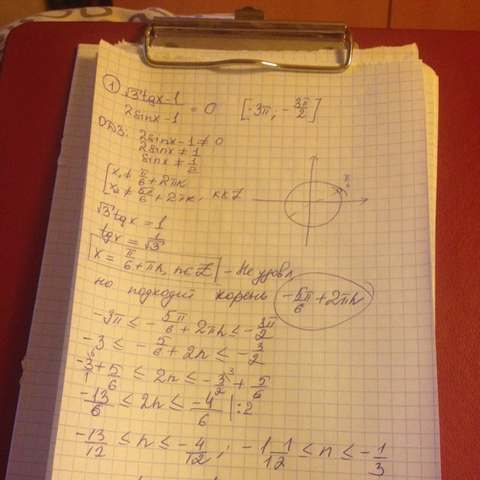 ① (√3 tgx - 1)/(2sinx - 1) = 0 [-3π, -3π/2]
ОДЗ: 2sinx - 1 ≠ 0
2sinx ≠ 1
sinx ≠ 1/2
[x₁ ≠ π/6 + 2πk
x₂ ≠ 5π/6 + 2πk, k∈Z
√3 tgx = 1
tgx = 1/√3
[x = π/6 + πn, n∈Z | - Не удовл
но подходит корень -5π/6 + 2πn
-3π ≤ -5π/6 + 2πn ≤ -3π/2
-3 ≤ -5/6 + 2n ≤ -3/2
-3/1 + 5/6 ≤ 2n ≤ -3/2 + 5/6
-13/6 ≤ 2n ≤ -4/6 | :2
-13/12 ≤ n ≤ -4/12 ; -1 1/12 ≤ n ≤ -1/3